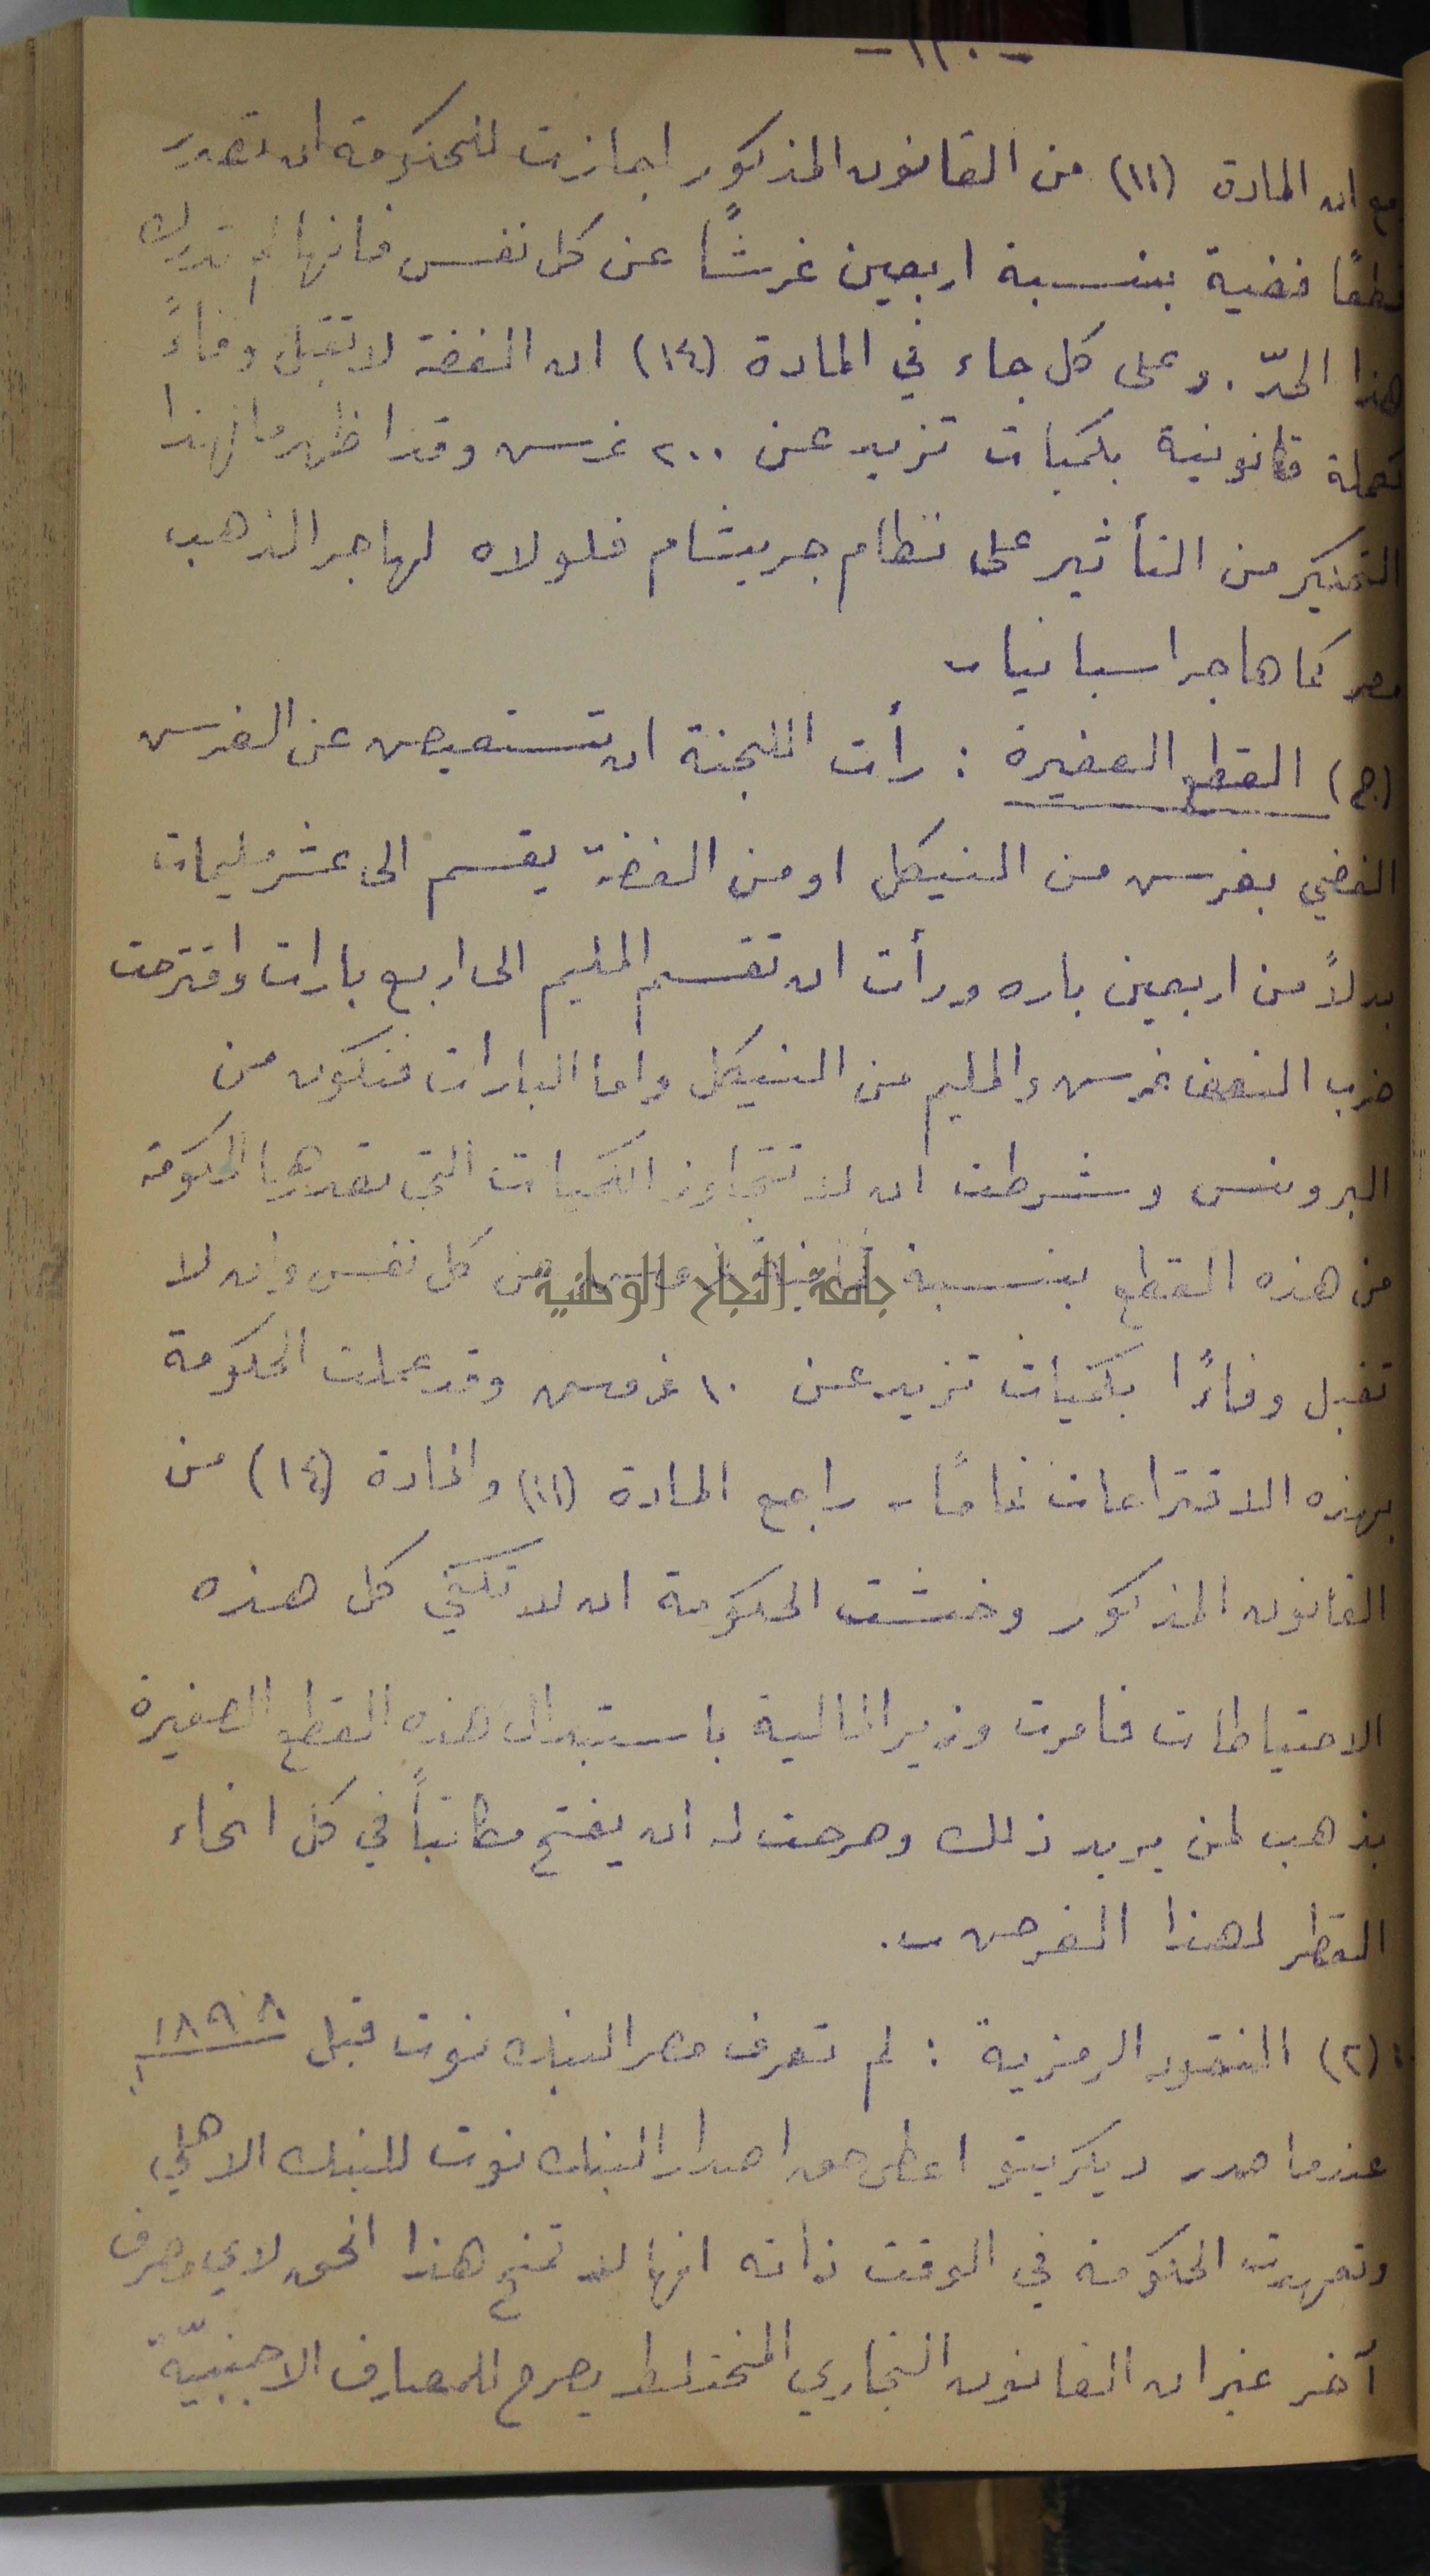 -١٢٠-
مع ان المادة (١١) من القانون المذكور اجازت للحكومة ان تصدر
قطعًا فضية بنسبة اربعين غرشًا عن كل نفس فانها لم تدرك
هذا الحدّ. وعلى كل جاء في المادة (١٤) ان الفضة لا تقبل وفاءً
كعملة قانونية بكميات تزيد عن ٢٠٠ غرس وقد اظهر ما لهذا
من التأثير على نظام جريشام فلولاه لهاجر الذهب
مصر كما هاجر اسبانيا -
(ج) القطع الصغيرة : رأت اللجنة ان تستعيض عن الغرس
الفضي بغرس من النيكل او من الفضة يقسم الى عشر مليمات
بدلاً من اربعين باره ورأت ان تقسم المليم الى اربع بارات واقترحت
ضرب النصف غرس والمليم من النيكل واما البارات فتكون من
البرونس وشرطت ان لا تتجاوز الكميات التي تصدرها الحكومة
من هذه القطع بنسبة عن كل نفس وان لا
جامعة النجاح الوطنية
تقبل وفاءًا بكميات تزيد عن ١٠ غروس وقد عملت الحكومة
بهذه الاقتراحات تمامًا - راجع المادة (١١) والمادة (١٤) من
القانون المذكور وخشت الحكومة ان لا تكفي كل هذه
الاحتياطات فامرت وزير المالية باستبدال هذه القطع الصغيرة
بذهب لمن يريد ذلك وصرحت له ان يفتح مكاتباً في كل انحاء
القطر لهذا الغرض -.
(٢) النقود الرمزية : لم تعرف مصر البنك نوت قبل ١٨٩٨
عندما صدر ديكريتو اعطى حق اصدار البنك نوت للبنك الاهلي
وتعهدت الحكومة في الوقت ذاته انها لا تمنح هذا الحق لاي مصرف
آخر غير ان القانون التجاري المختلط يصرح للمصارف الاجنبيّة